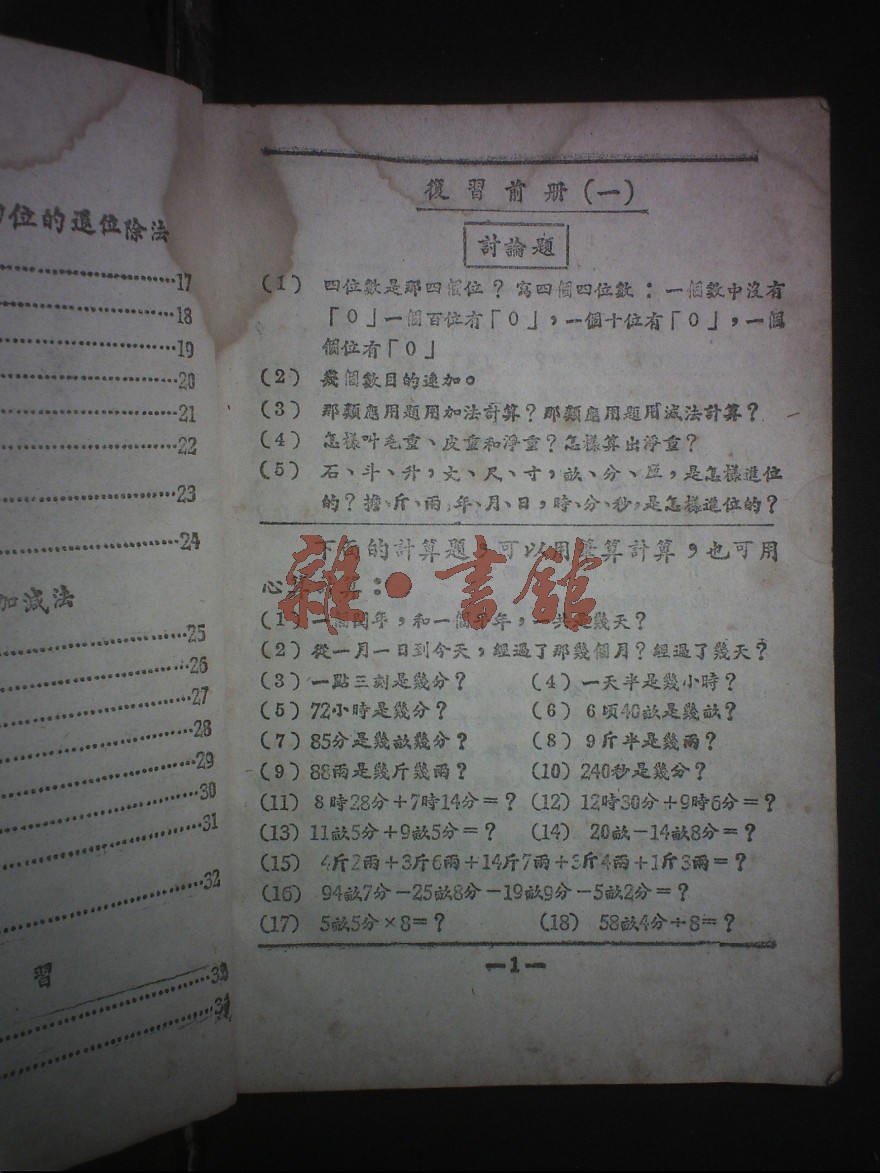 位的退位除法
17
18
19
20
21
22
23
24
加減法
25
26
27
28
29
30
31
32
習
33
34
復習前册(一)
討論題
(1) 四位數是那四個位?寫四個四位數:一個數中沒有
「0」一個百位有「0」,一個十位有「0」,一個
個位有「0」
(2) 幾個數目的連加。
(3) 那類應用題用加法計算?那類應用題用減法計算?
(4) 怎樣叫毛重、皮重和淨重?怎樣算出淨重?
(5) 石、斗、升,丈、尺、寸,畝、分、厘,是怎樣進位
的?擔、斤、兩,年、月、日,時、分、秒,是怎樣進位的?
下面的計算題,可以用筆算計算,也可用
心算計算:
(1) 一個閏年,和一個平年,一共是幾天?
(2) 從一月一日到今天,經過了那幾個月?經過了幾天?
(3) 一點三刻是幾分? (4) 一天半是幾小時?
(5) 72小時是幾分? (6) 6頃40畝是幾畝?
(7) 85分是幾畝幾分? (8) 9斤半是幾兩?
(9) 88兩是幾斤幾兩? (10) 240秒是幾分?
(11) 8時28分+7時14分=? (12) 12時30分+9時6分=?
(13) 11畝5分+9畝5分=? (14) 20畝-14畝8分=?
(15) 4斤2兩+3斤6兩+14斤7兩+3斤4兩+1斤3兩=?
(16) 94畝7分-25畝8分-19畝9分-5畝2分=?
(17) 5畝5分×8=? (18) 58畝4分÷8=?
—1—
雜·書館